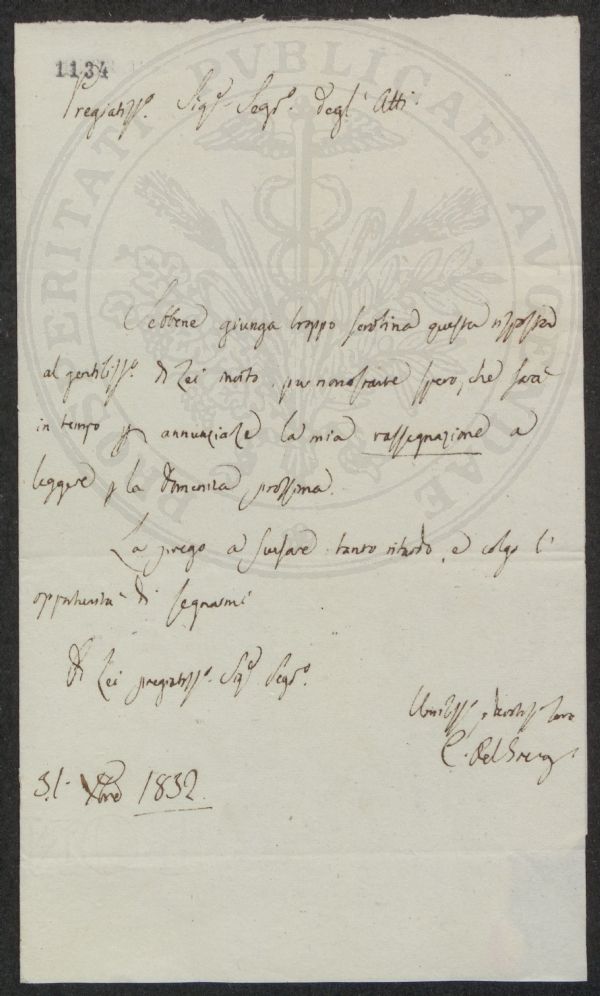 1134
Pregiatiss.º Sigr. Segr.º degl' Atti
Sebbene giunga troppo serotina questa risposta
al gentiliss.º di Lei invito, pur nonostante spero, che sarà
in tempo p annunziarle la mia rassegnazione a
leggere p la Domenica prossima.
La prego a scusare tanto ritardo, e colgo l'
opportunità di segnarmi
Di Lei pregiatiss.º Sigr Segr.º
Umiliss.º Devotiss.º Servo
C. Del
31. Xbre 1832.
PROSPERITATI PVBLICAE AVGENDAE